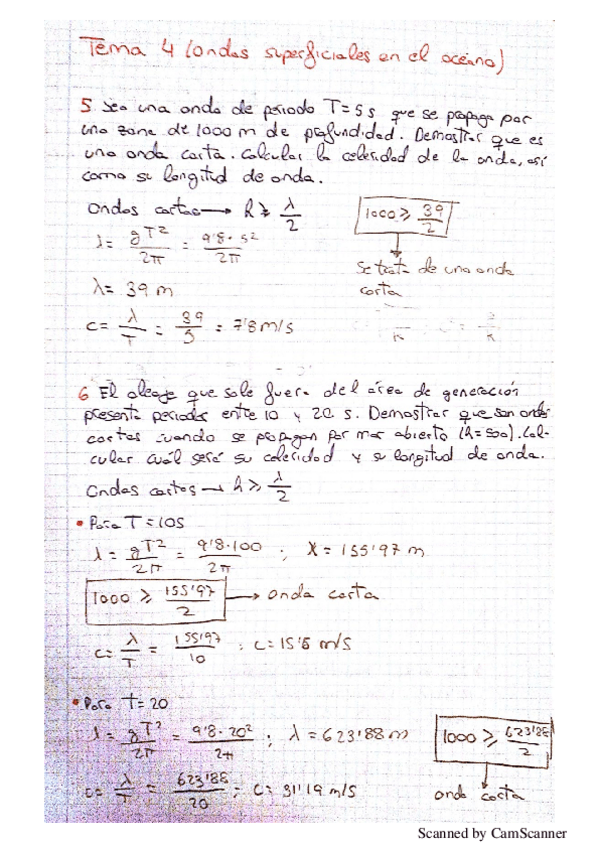 Tema 4 (ondas superficiales en el océano)
5 Sea una onda de periodo T=5s que se propaga por
una zona de 1000 m de profundidad. Demostrar que es
una onda corta. Calcular la celeridad de la onda, así
como su longitud de onda.
Ondas cortas → h ≥ λ/2
1000 ≥ 39/2
λ = gT²/2π = 9'8·5²/2π
Se trata de una onda
corta
λ = 39 m
c = λ/T = 39/5 = 7'8 m/s
6 El oleaje que sale fuera del área de generación
presenta periodos entre 10 y 20 s. Demostrar que son ondas
cortas cuando se propagan por mar abierto (h=500). Cal-
cular cuál será su celeridad y su longitud de onda.
Ondas cortas → h ≥ λ/2
• Para T = 10s
λ = gT²/2π = 9'8·100/2π ; λ = 155'97 m
1000 ≥ 155'97/2 → onda corta
c = λ/T = 155'97/10 ; c = 15'6 m/s
• Para T = 20
λ = gT²/2π = 9'8·20²/2π ; λ = 623'88 m
1000 ≥ 623'88/2
c = λ/T = 623'88/20 ; c = 31'19 m/s
onda corta
Scanned by CamScanner